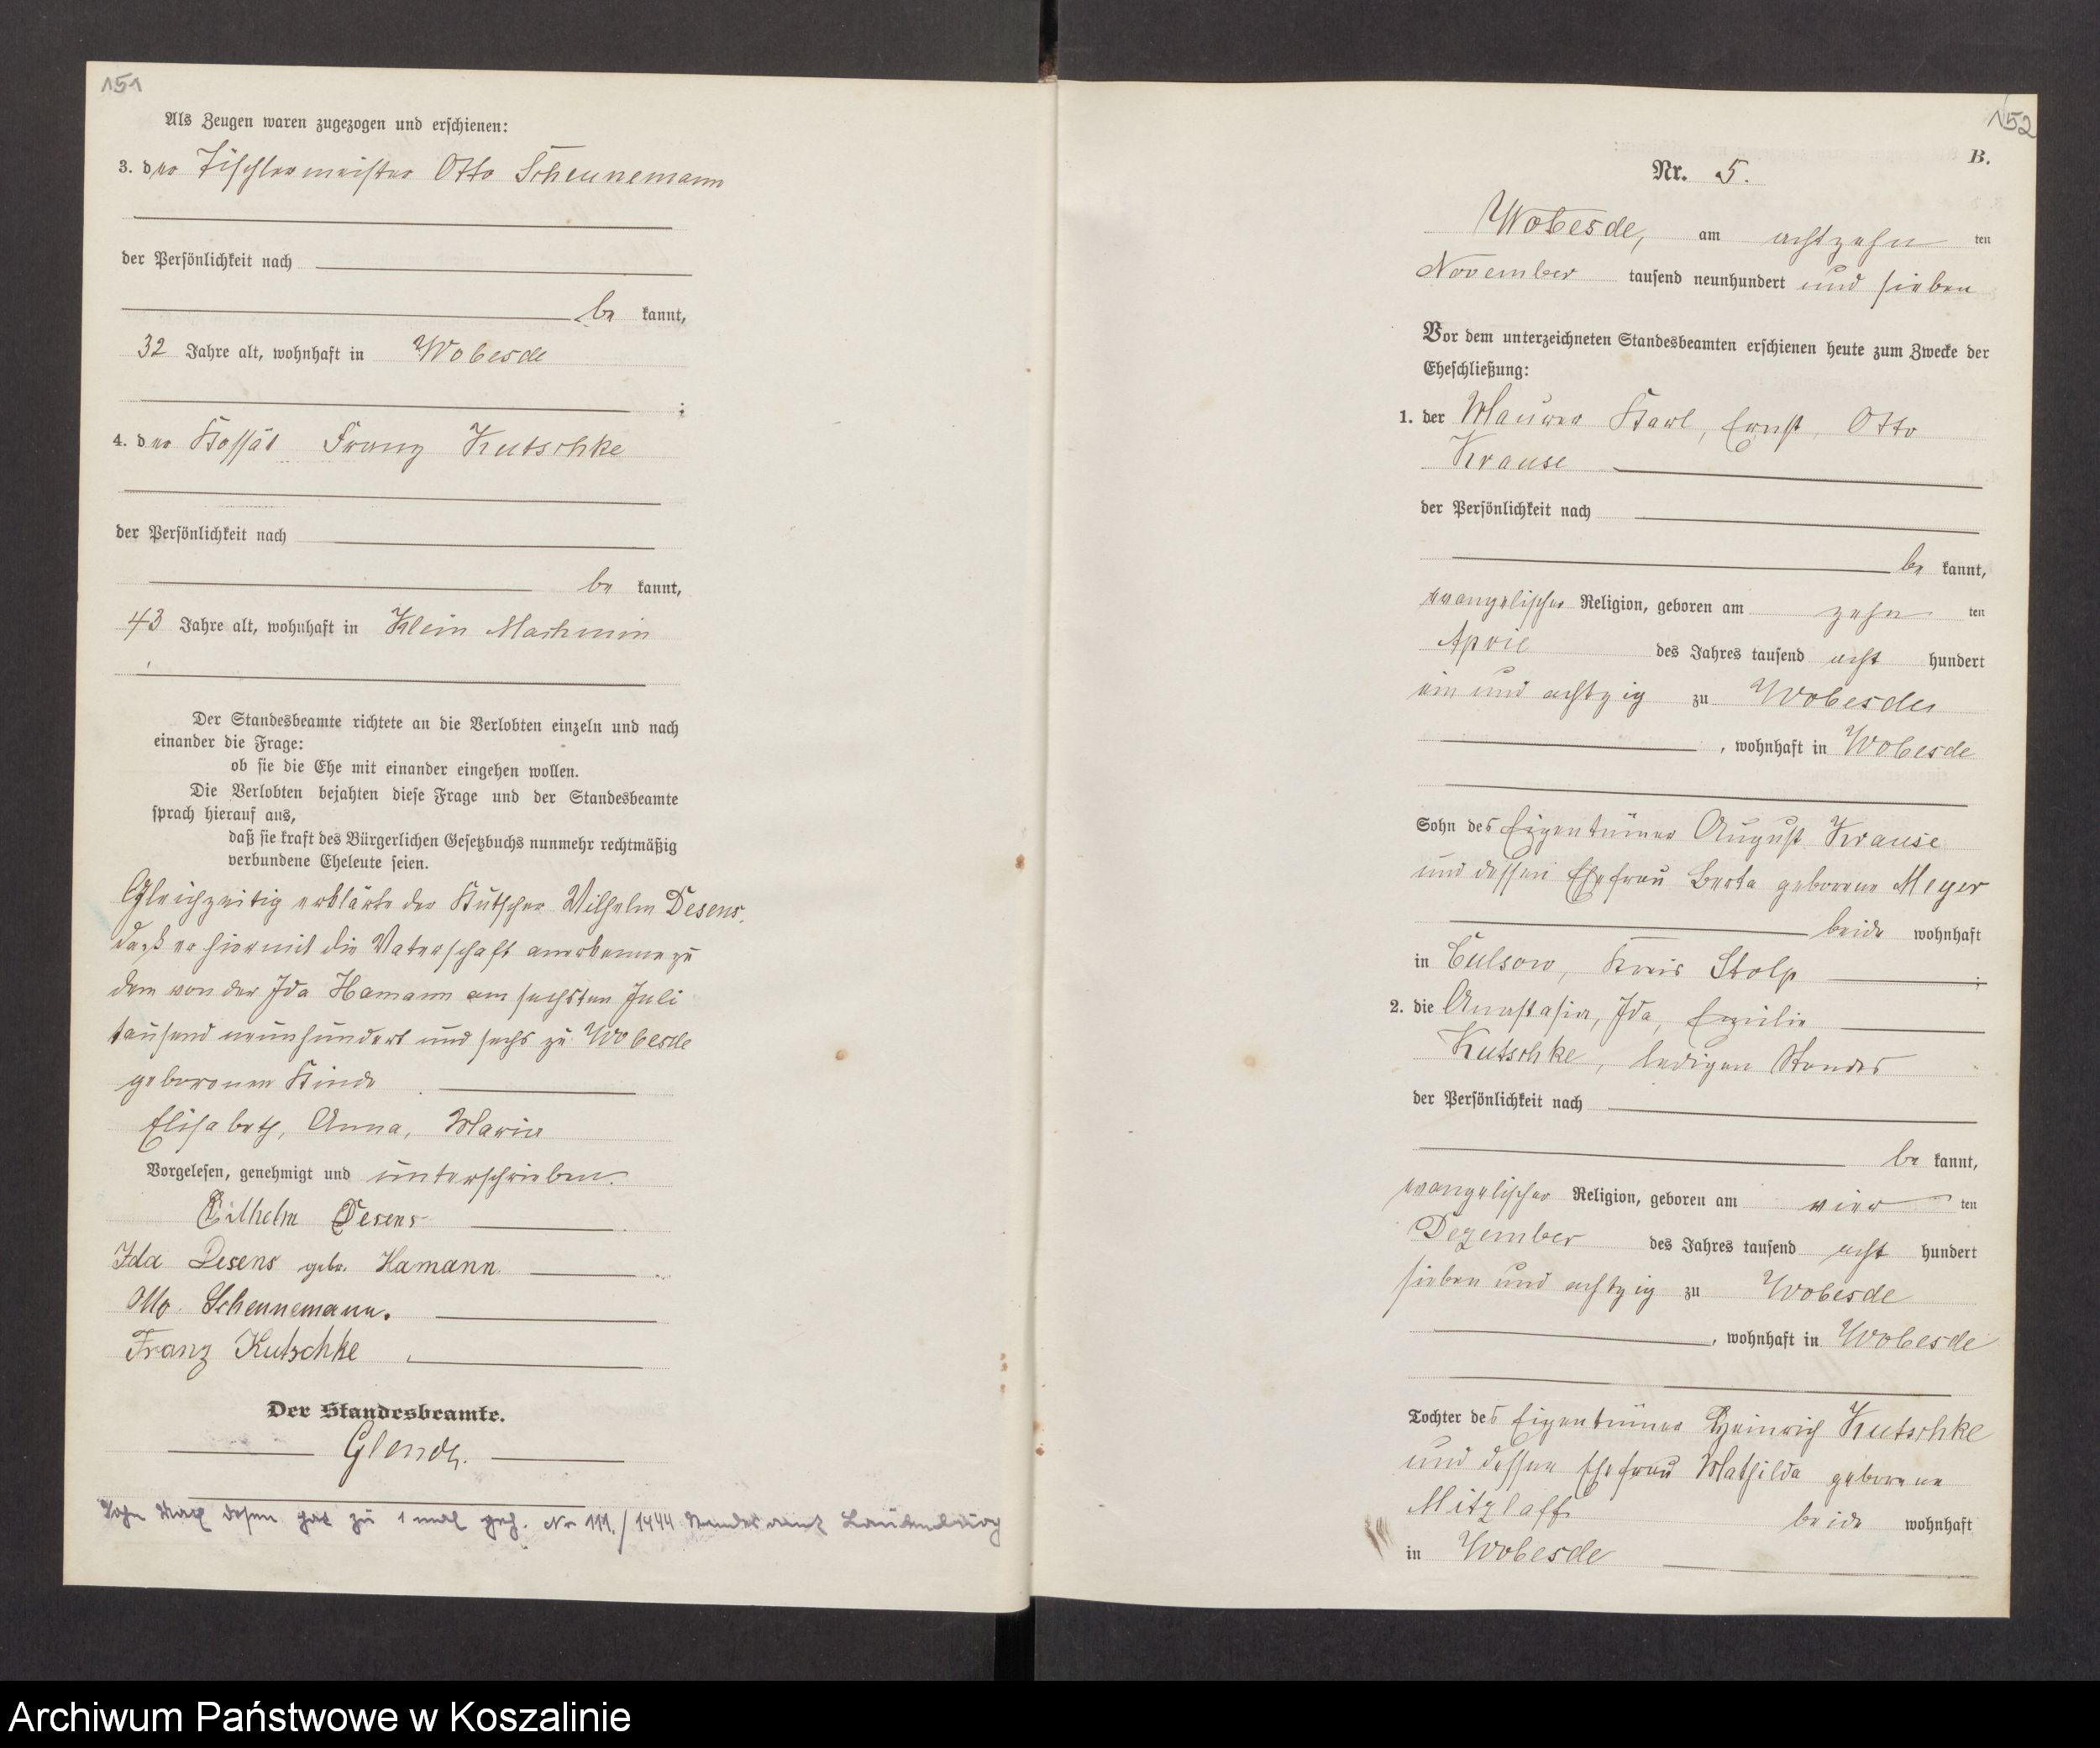 151
Als Zeugen waren zugezogen und erschienen:
3. der Tischlermeister Otto Scheunemann
der Persönlichkeit nach
be kannt,
32 Jahre alt, wohnhaft in Wobesde
;
4. der Kossät Franz Kutschke
der Persönlichkeit nach
be kannt,
43 Jahre alt, wohnhaft in Klein Machmin
Der Standesbeamte richtete an die Verlobten einzeln und nach
einander die Frage:
ob sie die Ehe mit einander eingehen wollen.
Die Verlobten bejahten diese Frage und der Standesbeamte
sprach hierauf aus,
daß sie kraft des Bürgerlichen Gesetzbuchs nunmehr rechtmäßig
verbundene Eheleute seien.
Gleichzeitig erklärte der Kutscher Wilhelm Desens,
daß er hiermit die Vaterschaft anerkenne zu
dem von der Ida Hamann am sechsten Juli
tausend neunhundert und sechs zu Wobesde
geborenen Kinde
Elisabeth, Anna, Maria
Vorgelesen, genehmigt und unterschrieben.
Wilhelm Desens
Ida Desens geb. Hamann.
Otto Scheunemann.
Franz Kutschke
Der Standesbeamte.
Glende.
Sohn Max hat zu 1 mal geh. Nr 111./1944 Standesamt Lauenburg
152
B.
Nr. 5.
Wobesde, am achtzehn ten
November tausend neunhundert und sieben
Vor dem unterzeichneten Standesbeamten erschienen heute zum Zwecke der
Eheschließung:
1. der Maurer Karl, Ernst, Otto
Krause
der Persönlichkeit nach
be kannt,
evangelischer Religion, geboren am zehn ten
April des Jahres tausend acht hundert
ein und achtzig zu Wobesde
, wohnhaft in Wobesde
Sohn des Eigentümer August Krause
und dessen Ehefrau Berta geborene Meyer
beide wohnhaft
in Culsow, Kreis Stolp ;
2. die Anastasia, Ida, Emilie
Kutschke, ledigen Standes
der Persönlichkeit nach
be kannt,
evangelischer Religion, geboren am vier ten
Dezember des Jahres tausend acht hundert
sieben und achtzig zu Wobesde
, wohnhaft in Wobesde
Tochter des Eigentümer Heinrich Kutschke
und dessen Ehefrau Mathilda geborene
Mitzlaff beide wohnhaft
in Wobesde
Archiwum Państwowe w Koszalinie